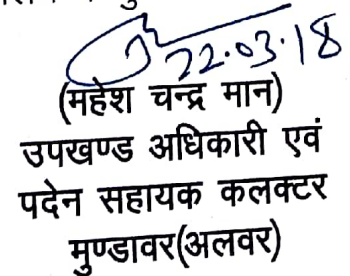 22.03.18
(महेश चन्द्र मान)
उपखण्ड अधिकारी एवं
पदेन सहायक कलक्टर
मुण्डावर(अलवर)